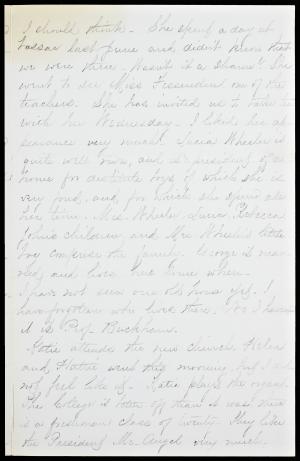 I should think. She spent a day at
Vassar last June and didn't know that
we were there. Wasn't it a shame? She
went to see Miss Fessenden one of the
teachers. She has invited us to take tea
with her Wednesday. I liked her ap-
pearance very much. Lucia Wheeler is
quite well now, and is presiding of a
home for destitute boys of which she is
very fond, and for which she spends all
her time. Mrs. Wheeler, Lucia, Rebecca
John's children and Mrs Wheeler's little
boy compose the family. George is mar-
ried and lives some where.
I have not seen our old house yet. I
have forgotten who lives there. No I haven't
it is Prof. Buckham.
Katie attends the new church. Helen
and Hattie went this morning, but I did
not feel like it. Katie plays the organ.
The College is better off than it was. There
is a freshman class of twenty. They like
the President Mr. Angel very much.